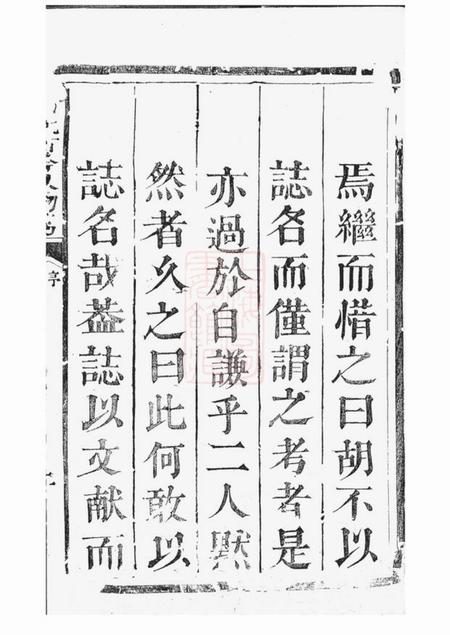 焉繼而惜之曰胡不以
誌名而僅謂之考者是
亦過於自謙乎二人默
然者久之曰此何敢以
誌名哉葢誌以文献而
序